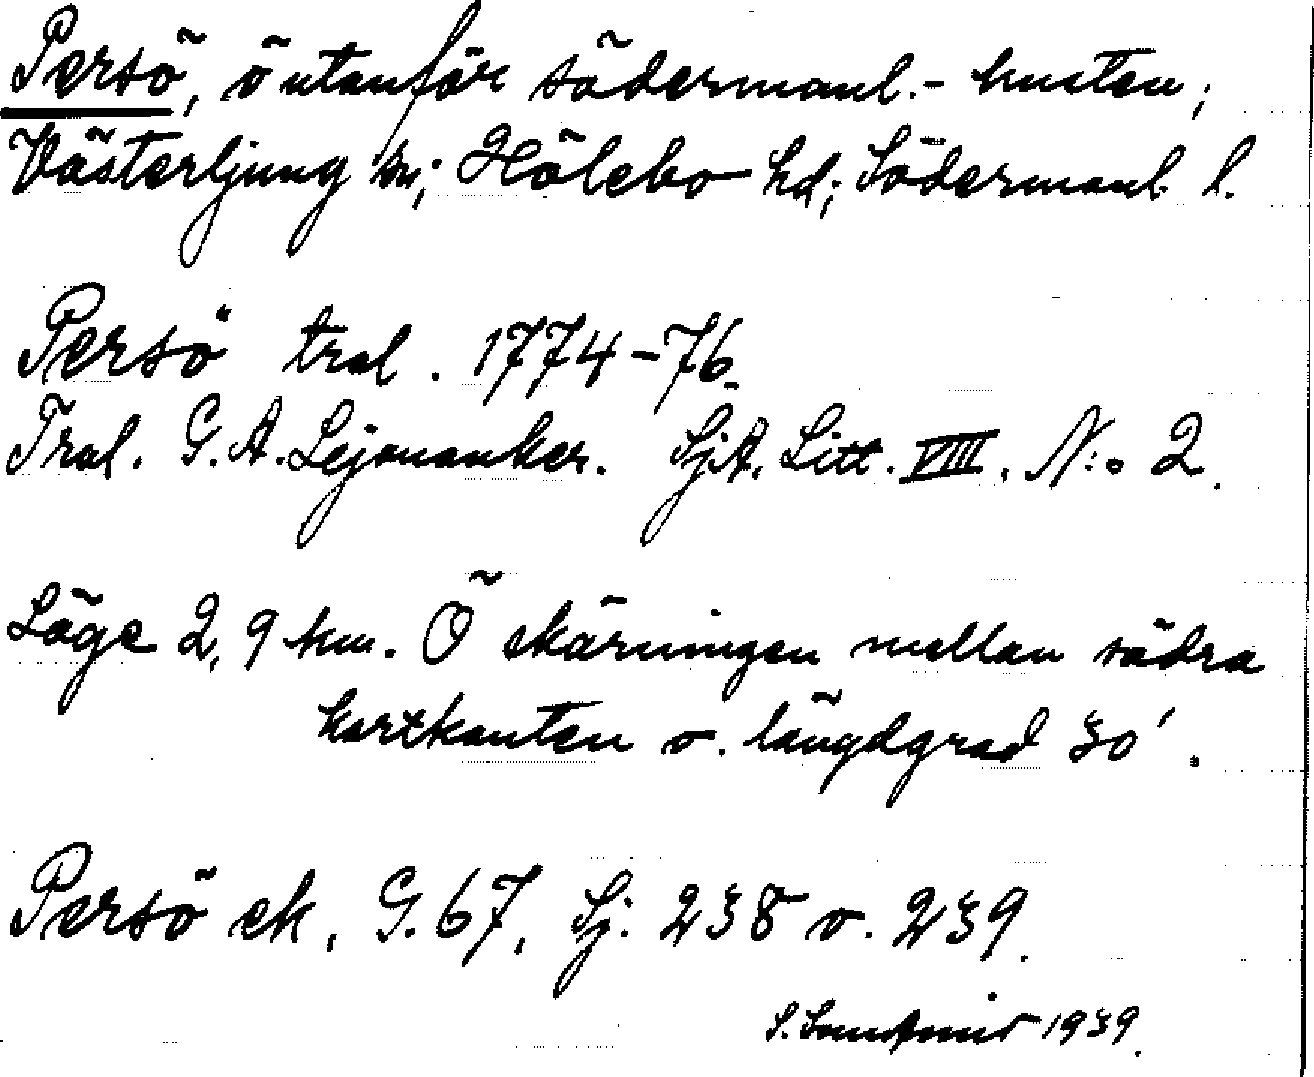 Persö, ö utanför södermanl.- kusten;
Västerljung sn; Hölebo hd; Södermanl. l.
Persö tral. 1774-76.
Tral. G. A. Lejonanker. SjA. Litt. VIII. N:o 2.
Läge 2,9 km. Ö skärningen mellan södra
kartkanten o. längdgrad 30'.
Persö ek. G. 67, Sj. 238 o. 239.
S. 1939.